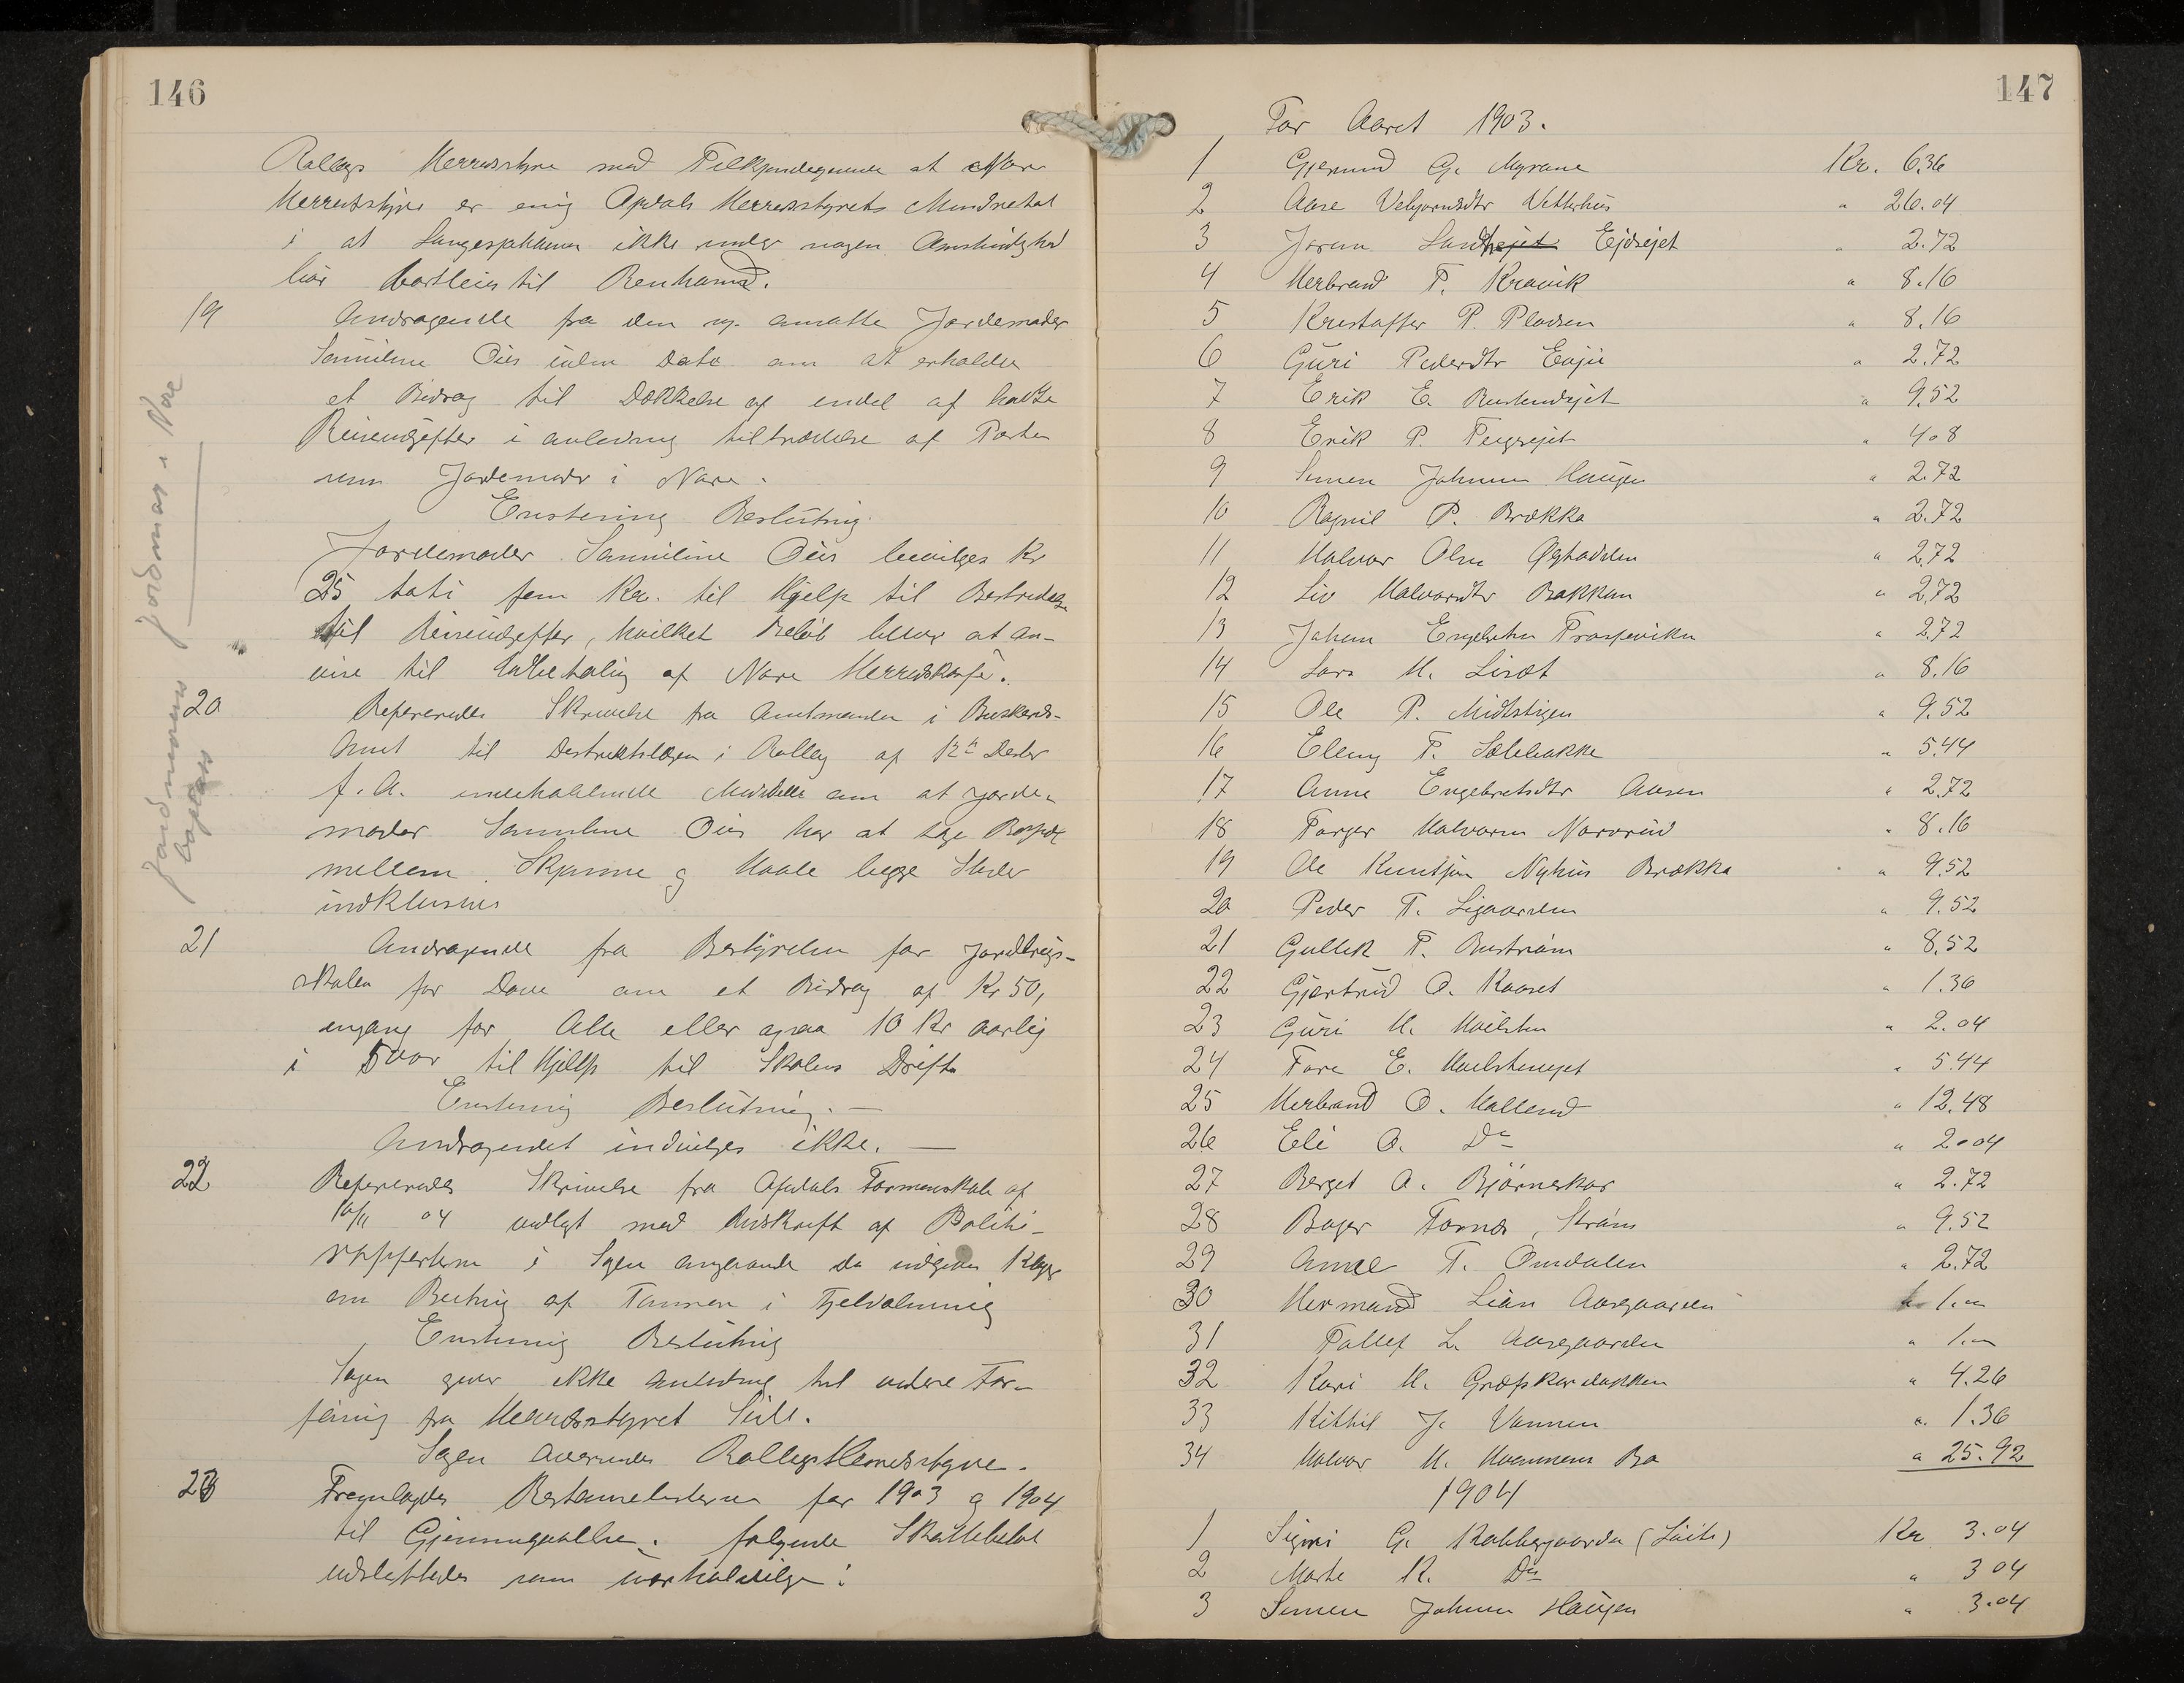 146
Rollags Herredsstyre med Tilkjendegivende at Nore
Herredsstyre er enig Opdals Herredsstyrets Mindretal
i at Langesjøhavnen ikke under nogen Omstændighed
bør bortleies til Renhavnd.
19 Andragende fra den ny ansatte Jordemoder
Samiline Øies uden Dato om at erholde
et Bidrag til Dækkelse af endel af havte
Reiseudgifter i anledning tiltrædelse af Posten
som Jordemoder i Nore.
Enstemig Beslutnig.
Jordemoder Samiline Øies bevilges Kr
25 totifem Kr. til Hjelp til Bestridelse
til Reiseudgifter, hvilket Beløb blever at an-
vise til Udbetalig af Nore Herredskasse.
20 Refereredes Skrivelse fra Amtmanden i Buskeruds
Amt til Destriktslægen i Rollag af 12te Desbr
f. A. indeholdende Meddelelse om at Jorde-
moder Samiline Øies har at tage Bopæl
mellem Skjønne g Haale begge Steder
indklusive
Jordmor i Nore
Jordmorens bopæl
21 Andragende fra Bestyrelsen for Jordbrugs-
skolen for Døve om et Bidrag af Kr 50,
engang for Alle eller ogsaa 10 Kr aarlig
i 5 aar til Hjelp til Skolens Drift
Enstemig Beslutning. —
Andragendet indvilges ikke. —
22 Refereredes Skrivelse fra Opdals Formenskab af
10/11 04 vedlagt med Avskrift af Politi-
rapporterne i Sagen angaaende da indgivne Klager
om Beiting af Tamren i Fjeldalmenig
Enstemig Beslutnig
Sagen giver ikke anledning til videre For-
føinig fra Herredsstyret Side.
Sagen Oversendes Rollags Herredsstyre.
23 Fremlagdes Restanselisterne for 1903 g 1904
til Gjennemgaaelse. følgende Skattebeløb
udslettedes som uerholdelige:
147
For Aaret 1903.
1 Gjermund G. Myrane Kr. 6.36
2 Aase Vebjørnsdtr Vetterhus " 26.04
3 Joron Sandsejet Ejdsejet " 2.72
4 Herbrand T. Kravik " 8.16
5 Kristoffer P. Pladsen " 8.16
6 Guri Pedersdtr Evju " 2.72
7 Erik E. Ruslandsejet " 9.52
8 Erik P. Teigsejet " 4.08
9 Simen Johnsen Haugen " 2.72
10 Ragnil P. Brække " 2.72
11 Halvor Olsen Øghadden " 2.72
12 Liv Halvorsdtr Bakken " 2.72
13 Johan Engebretsen " 2.72
14 Lars H. Lisæt " 8.16
15 Ole P. Midtstigen " 9.52
16 Elling T. Sølebakke " 5.44
17 Anne Engebretsdtr Aasen " 2.72
18 Torger Halvorsen Norvrud " 8.16
19 Ole Knutsen Nyhus Brækka " 9.52
20 Peder T. Ligaarden " 9.52
21 Gullek T. Bustrøm " 8.52
22 Gjertrud O. Kaaset " 1.36
23 Guri H. " 2.04
24 Tore E. " 5.44
25 Herbrand O. Halland " 12.48
26 Eli O. Do " 2.04
27 Berget A. Bjørneskar " 2.72
28 Roger Tornes, Strøm " 9.52
29 Anne T. Omdalen " 2.72
30 Hermand Lian Aasgaarden " 1.—
31 Tollef L. Aasgaarden " 1.—
32 Kari H. " 4.26
33 Kittil J. Vannen " 1.36
34 Halvor H. Hvammens Bo " 25.92
1904
1 Signi G. Kobbergaarden (Løite) Kr 3.04
2 Marte K. Do " 3 04
3 Simen Johnsen Haugen " 3.04